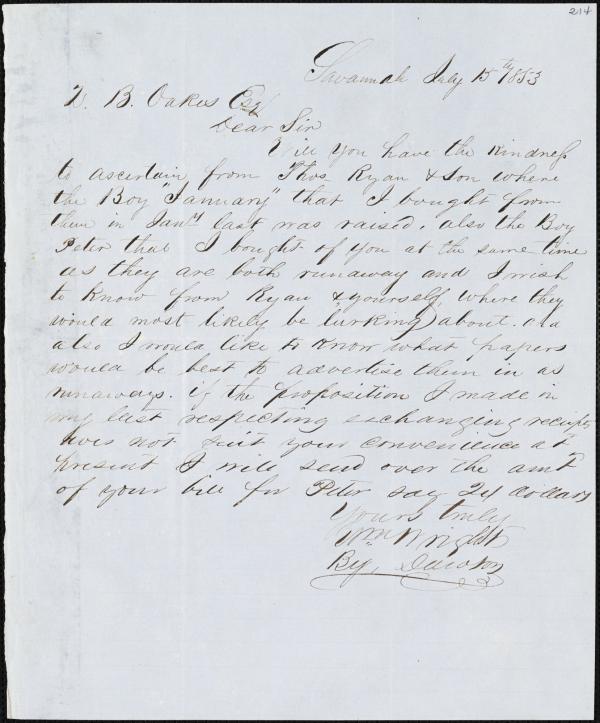 214
Savannah July 15th 1853
Z. B. Oakes Esq
Dear Sir
Will you have the kindness
to ascertain from Thos. Ryan & Son where
the Boy "January" that I bought from
them in Jany last was raised, also the Boy
Peter that I bought of you at the same time
as they are both runaway and I wish
to know from Ryan & yourself, where they
would most likely be lurking about. and
also I would like to know what papers
would be best to advertise them in as
runaways. if the proposition I made in
my last respecting exchanging receipts
does not suit your convenience at
present I will send over the amt
of your bill for Peter say 24 dollars
Yours truly
Wm Wright
By, Dawson